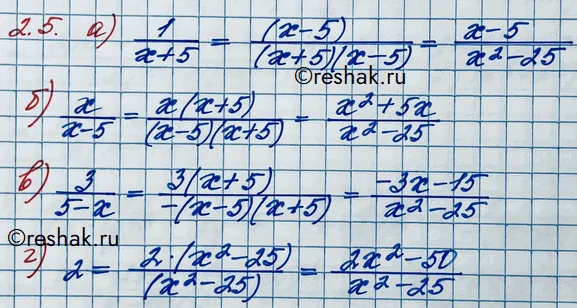 2.5. а) 1/(x+5) = (x-5)/((x+5)(x-5)) = (x-5)/(x²-25)
©reshak.ru
б) x/(x-5) = x(x+5)/((x-5)(x+5)) = (x²+5x)/(x²-25)
в) 3/(5-x) = 3(x+5)/(-(x-5)(x+5)) = (-3x-15)/(x²-25)
©reshak.ru
г) 2 = 2·(x²-25)/(x²-25) = (2x²-50)/(x²-25)